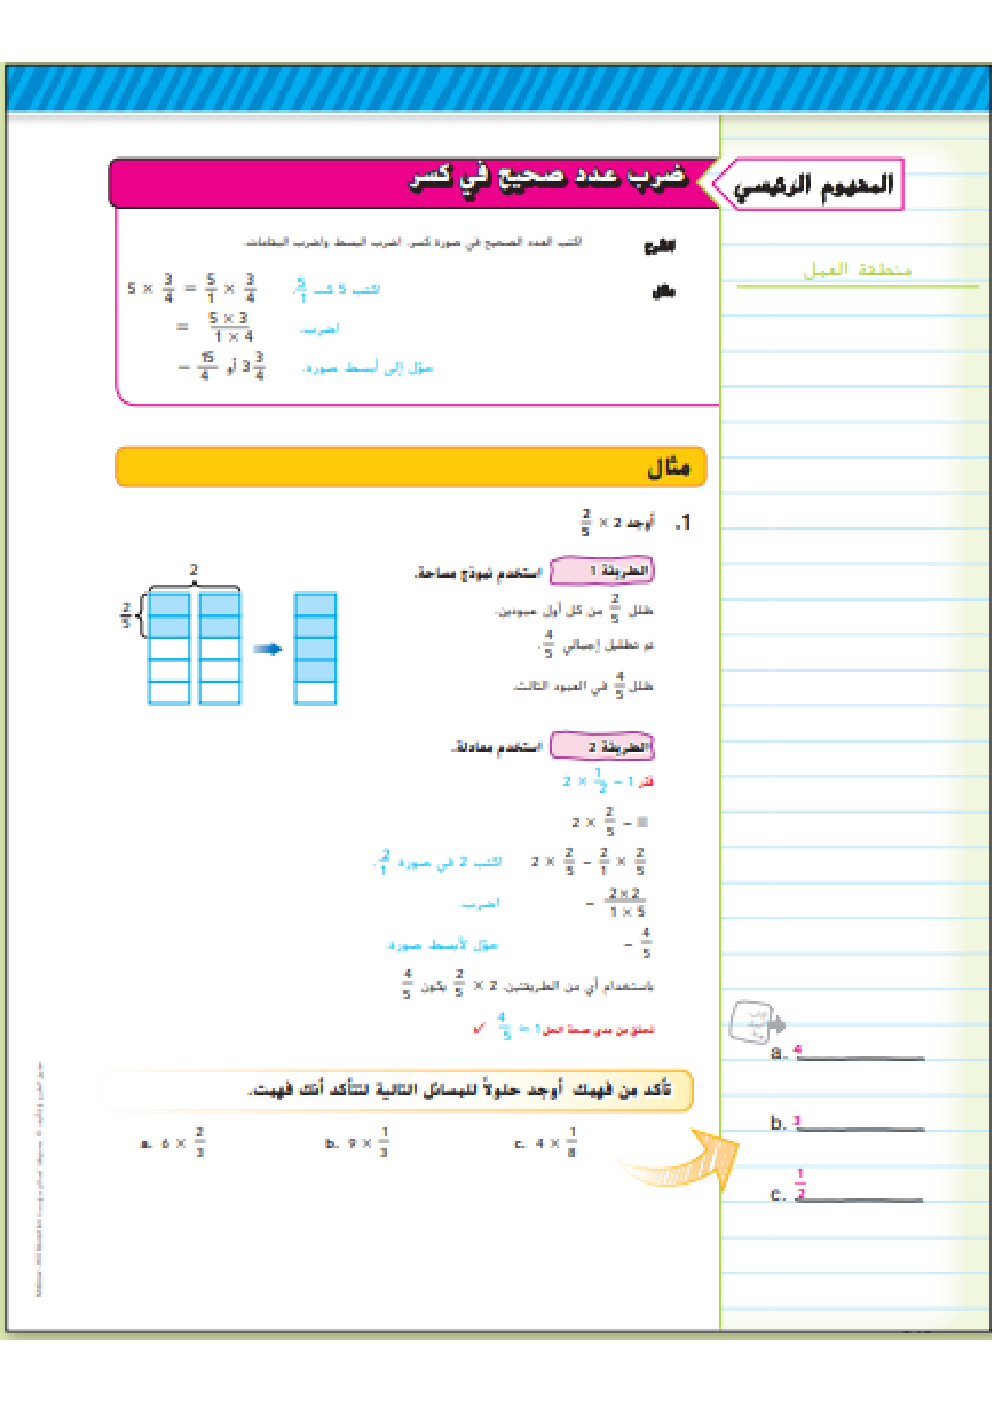 المفهوم الرئيسي
ضرب عدد صحيح في كسر
الشرح اكتب العدد الصحيح في صورة كسر. اضرب البسط واضرب المقامات.
مثال 5 × 3/4 = 5/1 × 3/4 اكتب 5 كـ 5/1.
= 5 × 3 / 1 × 4 اضرب.
= 15/4 أو 3 3/4 حوّل إلى أبسط صورة.
منطقة العمل
مثال
1. أوجد 2 × 2/5
الطريقة 1 استخدم نموذج مساحة.
ظلل 2/5 من كل أول عمودين.
تم تظليل إجمالي 4/5.
ظلل 4/5 في العمود الثالث.
2
2/5
الطريقة 2 استخدم معادلة.
قدّر 2 × 1/2 = 1
2 × 2/5 = ■
2 × 2/5 = 2/1 × 2/5 اكتب 2 في صورة 2/1.
= 2×2 / 1 × 5 اضرب.
= 4/5 حوّل لأبسط صورة.
باستخدام أي من الطريقتين، 2 × 2/5 يكون 4/5
تحقق من مدى صحة الحل 4/5 ≈ 1 ✓
تأكد من فهمك أوجد حلولاً للمسائل التالية لتتأكد أنك فهمت.
a. 6 × 2/3 b. 9 × 1/3 c. 4 × 1/8
a. 4
b. 3
c. 1/2